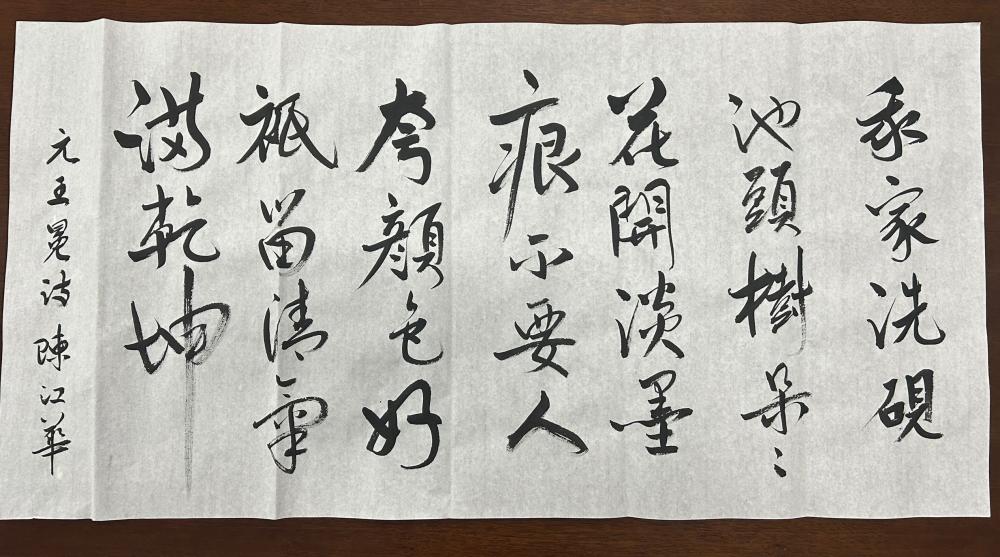 我家洗硯
池頭樹朵〻
花開淡墨
痕不要人
夸顏色好
祇留清氣
满乾坤
元王冕诗陳江華